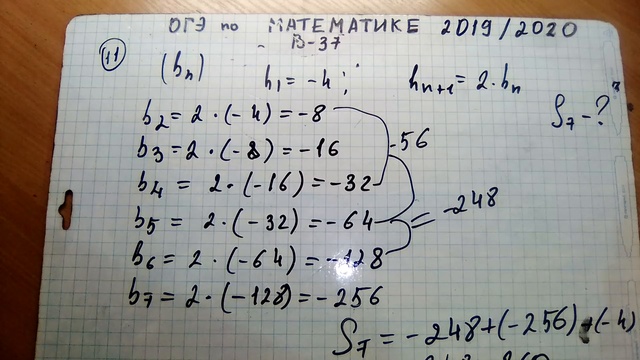 ОГЭ по МАТЕМАТИКЕ 2019/2020
В-37
11
(bn) b1 = -4; bn+1 = 2·bn
S7 - ?
b2 = 2·(-4) = -8
b3 = 2·(-8) = -16
-56
b4 = 2·(-16) = -32
b5 = 2·(-32) = -64 = -248
b6 = 2·(-64) = -128
b7 = 2·(-128) = -256
S7 = -248+(-256)+(-4)